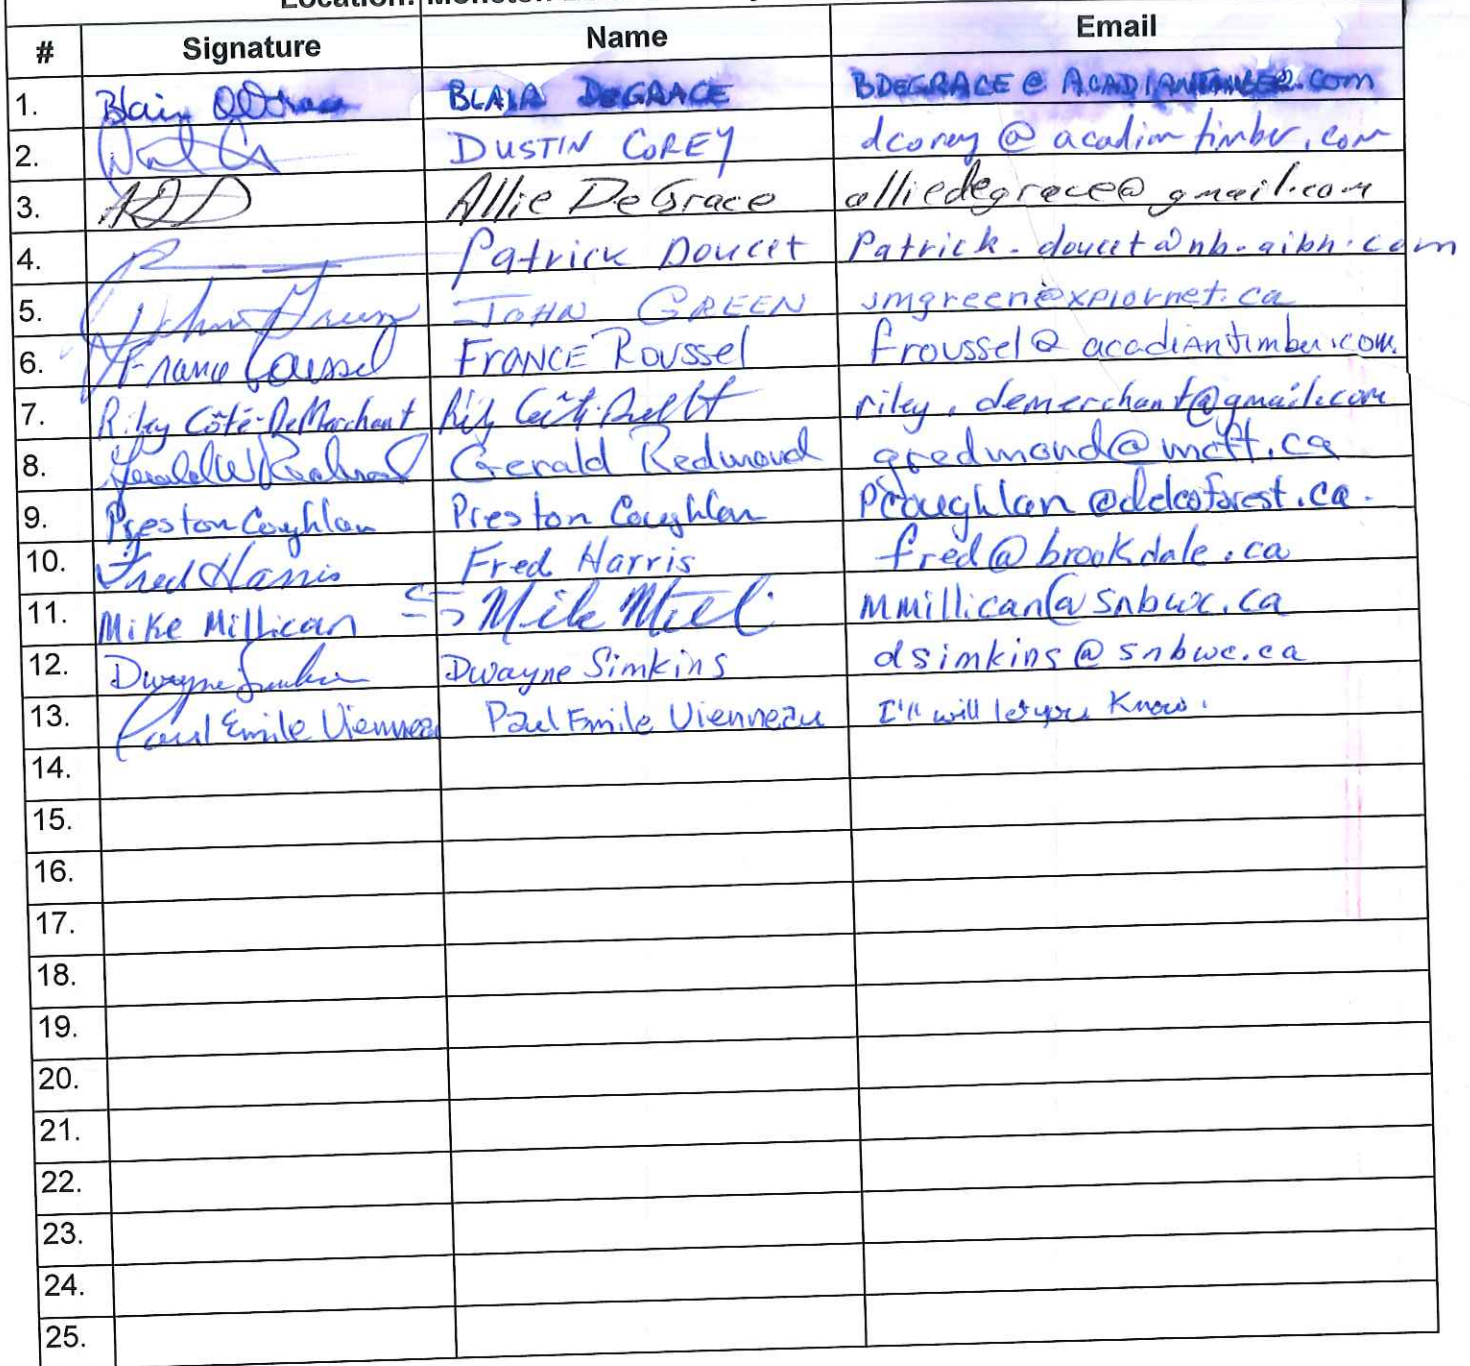 Location: Moncton
# Signature Name Email
1. Blair DeGrace BLAIR DEGRACE BDEGRACE@ACADIANTIMBER.COM
2. DUSTIN COREY dcorey@acadiantimber.com
3. Allie DeGrace alliedegrace@gmail.com
4. Patrick Doucet Patrick.doucet@nb.aibn.com
5. John Green JOHN GREEN jmgreen@xplornet.ca
6. France Roussel FRANCE ROUSSEL froussel@acadiantimber.com
7. Riley Côté-DeMerchant riley.demerchant@gmail.com
8. Gerald W Redmond Gerald Redmond gredmond@mcft.ca
9. Preston Coughlan Preston Coughlan Pcoughlan@delcoforest.ca.
10. Fred Harris Fred Harris fred@brookdale.ca
11. Mike Millican mmillican@snbwc.ca
12. Dwayne Simkins Dwayne Simkins dsimkins@snbwc.ca
13. Paul Emile Vienneau Paul Emile Vienneau I'll will let you Know.
14.
15.
16.
17.
18.
19.
20.
21.
22.
23.
24.
25.